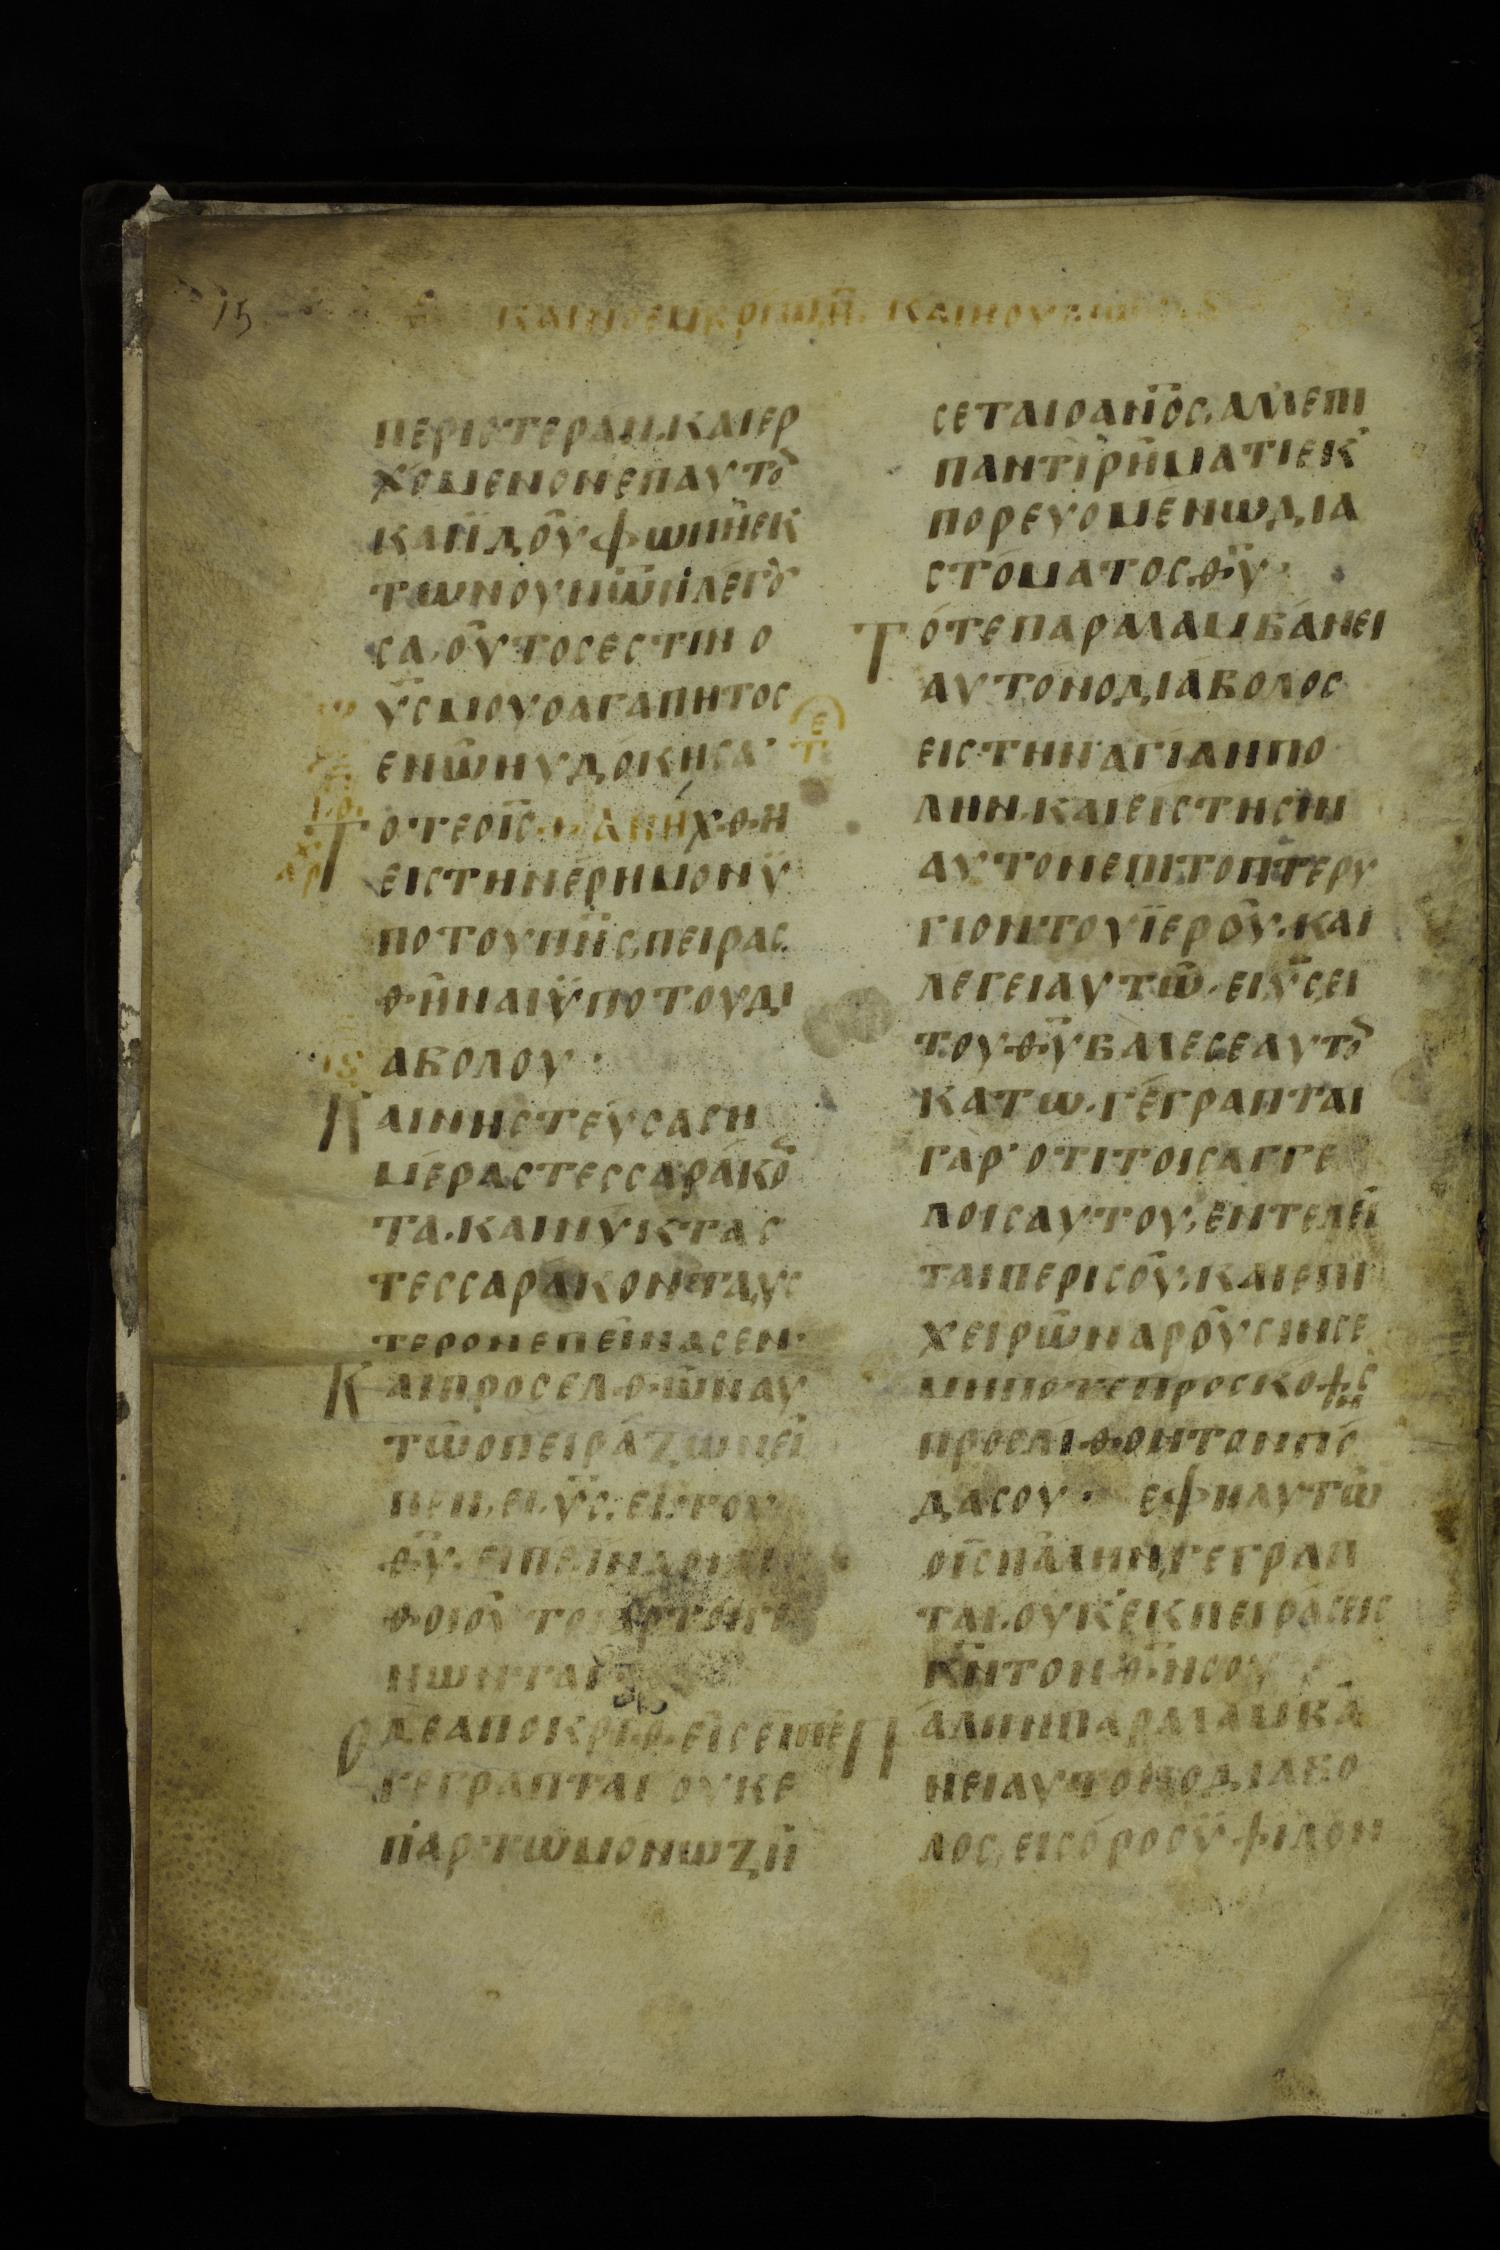 15
ΠΕΡΙCΤΕΡΑΝ.ΚΑΙΕΡ
ΧΟΜΕΝΟΝΕΠΑΥΤΟ̅
ΚΑΙΪΔΟΥΦΩΝΗΕΚ
ΤΩΝΟΥΝΩ̅ΝΛΕΓΟΥ
CΑ,ΟΥΤΟCΕCΤΙΝΟ
Υ̅CΜΟΥΟΑΓΑΠΗΤΟC
ΕΝΩΗΥΔΟΚΗCΑ·
ΤΟΤΕΟΙ̅C ΑΝΗΧΘΗ
ΕΙCΤΗΝΕΡΗΜΟΝΥ
ΠΟΤΟΥΠΝ̅C,ΠΕΙΡΑC
ΘΗΝΑΙΫΠΟΤΟΥΔΙ
ΑΒΟΛΟΥ·
ΚΑΙΝΗCΤΕΥCΑCΗ
ΜΕΡΑCΤΕCCΑΡΑΚΟ̅
ΤΑ.ΚΑΙΝΥΚΤΑC
ΤΕCCΑΡΑΚΟΝΤΑ,ΥC
ΤΕΡΟΝΕΠΕΙΝΑCΕΝ·
ΚΑΙΠΡΟCΕΛΘΩΝΑΥ
ΤΩΟΠΕΙΡΑΖΩΝΕΙ
ΠΕΝ,ΕΙ,Υ̅C,ΕΙ,ΤΟΥ
Θ̅Υ,ΕΙΠΕ
ΝΩΝΤΑΙ
ΟΔΕΑΠΟΚΡΙΘΕΙCΕΙΠΕ
ΓΕΓΡΑΠΤΑΙΟΥΚΕ
ΠΑΡΤΩΜΟΝΩΖΗ
CΕΤΑΙΟΑΝ̅ΟC,ΑΛΛΕΠΙ
ΠΑΝΤΙΡΗΜΑΤΙΕΚ
ΠΟΡΕΥΟΜΕΝΩΔΙΑ
CΤΟΜΑΤΟCΘ̅Υ·
ΤΟΤΕΠΑΡΑΛΑΜΒΑΝΕΙ
ΑΥΤΟΝΟΔΙΑΒΟΛΟC
ΕΙCΤΗΝΑΓΙΑΝΠΟ
ΛΗΝ.ΚΑΙΕΙCΤΗCΙΝ
ΑΥΤΟΝΕΠΙΤΟΠΤΕΡΥ
ΓΙΟΝΤΟΥΪΕΡΟΥ.ΚΑΙ
ΛΕΓΕΙΑΥΤΩ.ΕΙΥ̅C,ΕΙ
ΤΟΥΘ̅ΥΒΑΛΕCΕΑΥΤΟ̅
ΚΑΤΩ.ΓΕΓΡΑΠΤΑΙ
ΓΑΡ·ΟΤΙΤΟΙCΑΓΓΕ
ΛΟΙCΑΥΤΟΥ,ΕΝΤΕΛΕΙ
ΤΑΙΠΕΡΙCΟΥ,ΚΑΙΕΠΙ
ΧΕΙΡΩΝΑΡΟΥCΙΝCΕ
ΜΗΠΟΤΕΠΡΟCΚΟΨΗC
ΠΡΟCΛΙΘΟΝΤΟΝΠΟ
ΔΑCΟΥ· ΕΦΗΑΥΤΩ
ΟΙ̅CΠΑΛΗΝ,ΓΕΓΡΑΠ
ΤΑΙ.ΟΥΚΕΚΠΕΙΡΑCΗC
Κ̅ΝΤΟΝΘ̅ΝCΟΥ
ΠΑΛΗΝΠΑΡΑΛΑΜΒΑ
ΝΕΙΑΥΤΟΝΟΔΙΑΒΟ
ΛΟC,ΕΙCΟΡΟCΫΨΙΛΟΝ